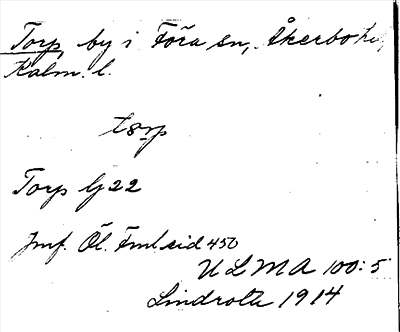 Torp, by i Föra sn, Åkerbo hd,
Kalm. l.
Torp G 22
Jmf. Öl. Fml sid 450
ULMA 100:5
Lindroth 1914